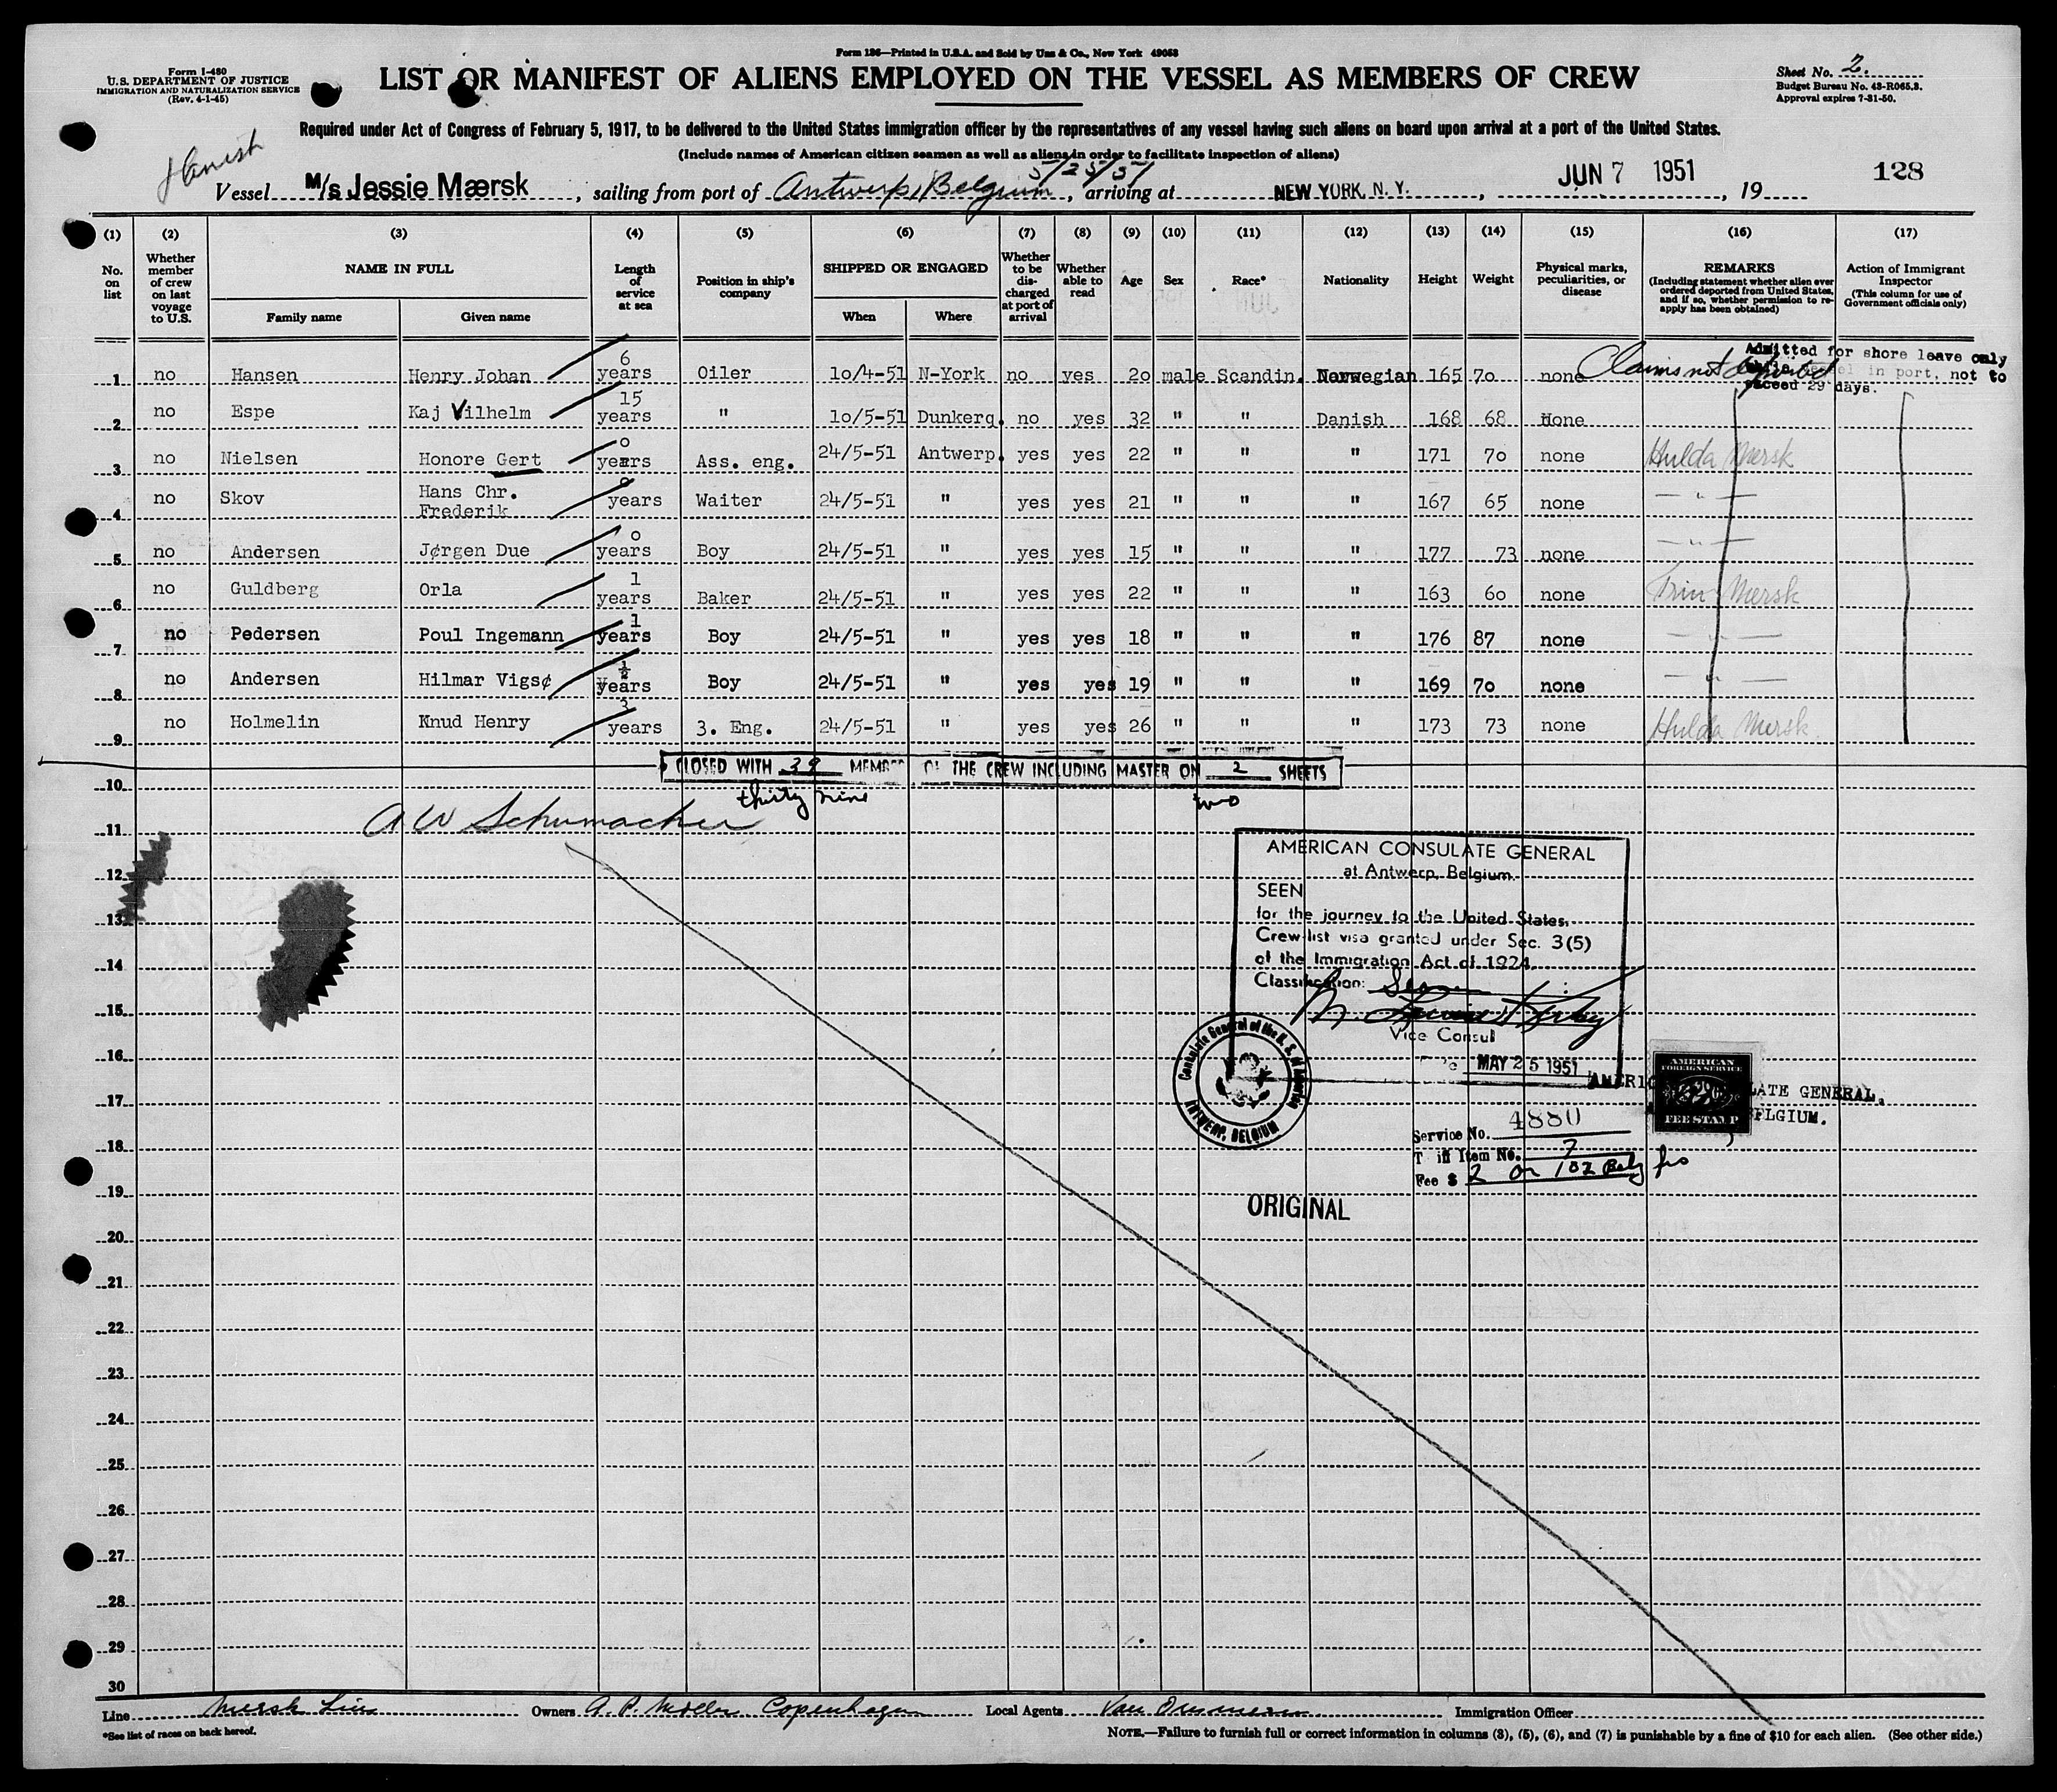 Form 136—Printed in U.S.A. and Sold by Unz & Co., New York 49053
Form I-480
U.S. DEPARTMENT OF JUSTICE
IMMIGRATION AND NATURALIZATION SERVICE
(Rev. 4-1-45)
LIST OR MANIFEST OF ALIENS EMPLOYED ON THE VESSEL AS MEMBERS OF CREW
Sheet No. 2.
Budget Bureau No. 43-R065.3.
Approval expires 7-31-50.
Required under Act of Congress of February 5, 1917, to be delivered to the United States immigration officer by the representatives of any vessel having such aliens on board upon arrival at a port of the United States.
(Include names of American citizen seamen as well as aliens in order to facilitate inspection of aliens)
Danish
5/25/51
Vessel M/s Jessie Mærsk, sailing from port of Antwerp, Belgium, arriving at NEW YORK, N. Y., JUN 7 1951, 19
128
(1) (2) (3) (4) (5) (6) (7) (8) (9) (10) (11) (12) (13) (14) (15) (16) (17)
No. on list
Whether member of crew on last voyage to U.S.
NAME IN FULL
Family name
Given name
Length of service at sea
Position in ship's company
SHIPPED OR ENGAGED
When
Where
Whether to be discharged at port of arrival
Whether able to read
Age
Sex
Race*
Nationality
Height
Weight
Physical marks, peculiarities, or disease
REMARKS
(Including statement whether alien ever ordered deported from United States, and if so, whether permission to re-apply has been obtained)
Action of Immigrant Inspector
(This column for use of Government officials only)
Admitted for shore leave only
in port, not to
exceed 29 days.
1 no Hansen Henry Johan 6 years Oiler 10/4-51 N-York no yes 20 male Scandin. Norwegian 165 70 none Claims not deported
2 no Espe Kaj Vilhelm 15 years " 10/5-51 Dunkerq. no yes 32 " " Danish 168 68 none
3 no Nielsen Honore Gert 0 years Ass. eng. 24/5-51 Antwerp. yes yes 22 " " " 171 70 none Hulda Mersk
4 no Skov Hans Chr. Frederik 0 years Waiter 24/5-51 " yes yes 21 " " " 167 65 none — " —
5 no Andersen Jørgen Due 0 years Boy 24/5-51 " yes yes 15 " " " 177 73 none — " —
6 no Guldberg Orla 1 years Baker 24/5-51 " yes yes 22 " " " 163 60 none Trin Mersk
7 no Pedersen Poul Ingemann 1 years Boy 24/5-51 " yes yes 18 " " " 176 87 none — " —
8 no Andersen Hilmar Vigsø ½ years Boy 24/5-51 " yes yes 19 " " " 169 70 none — " —
9 no Holmelin Knud Henry 3 years 3. Eng. 24/5-51 " yes yes 26 " " " 173 73 none Hulda Mersk
CLOSED WITH 39 MEMBERS OF THE CREW INCLUDING MASTER ON 2 SHEETS
thirty nine two
10
A W Schumacher
11
12
13
14
15
16
17
18
19
20
21
22
23
24
25
26
27
28
29
30
AMERICAN CONSULATE GENERAL
at Antwerp, Belgium.
SEEN
for the journey to the United States.
Crew-list visa granted under Sec. 3(5)
of the Immigration Act of 1924.
Classification:
Vice Consul
MAY 25 1951
Consulate General of the U. S. of America
ANTWERP, BELGIUM
AMERICAN
FOREIGN SERVICE
FEE STAMP
LATE GENERAL,
BELGIUM.
Service No. 4880
Tariff Item No. 7
Fee $ 2 or 102 Belg frs
ORIGINAL
Line Mersk Line Owners A. P. Moller Copenhagen Local Agents Van Ommeren Immigration Officer
*See list of races on back hereof.
NOTE.—Failure to furnish full or correct information in columns (3), (5), (6), and (7) is punishable by a fine of $10 for each alien. (See other side.)